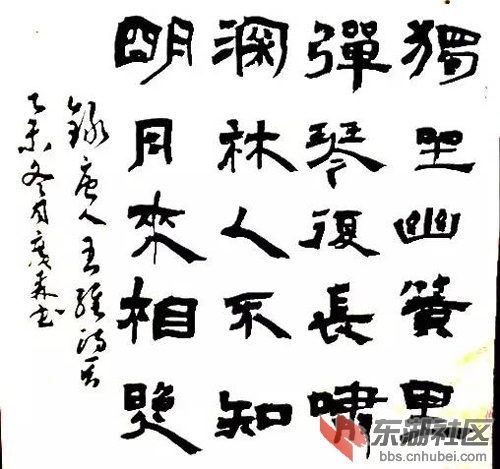 獨坐幽篁里
彈琴復長嘯
深林人不知
明月來相照
錄唐人王維詩
乙未冬月廣森书
东湖社区
bbs.cnhubei.com